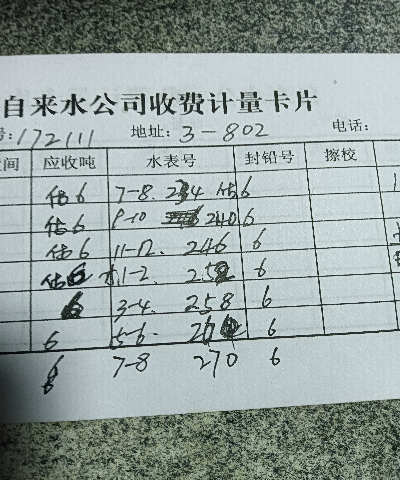 自来水公司收费计量卡片
号:172111 地址: 3-802 电话:
间 应收吨 水表号 封铅号 擦校
估6 7-8. 234 估6
估6 9-10 240 6
估6 11-12. 246 6
估6 1-2. 252 6
6 3-4. 258 6
6 5-6. 6
6 7-8 270 6